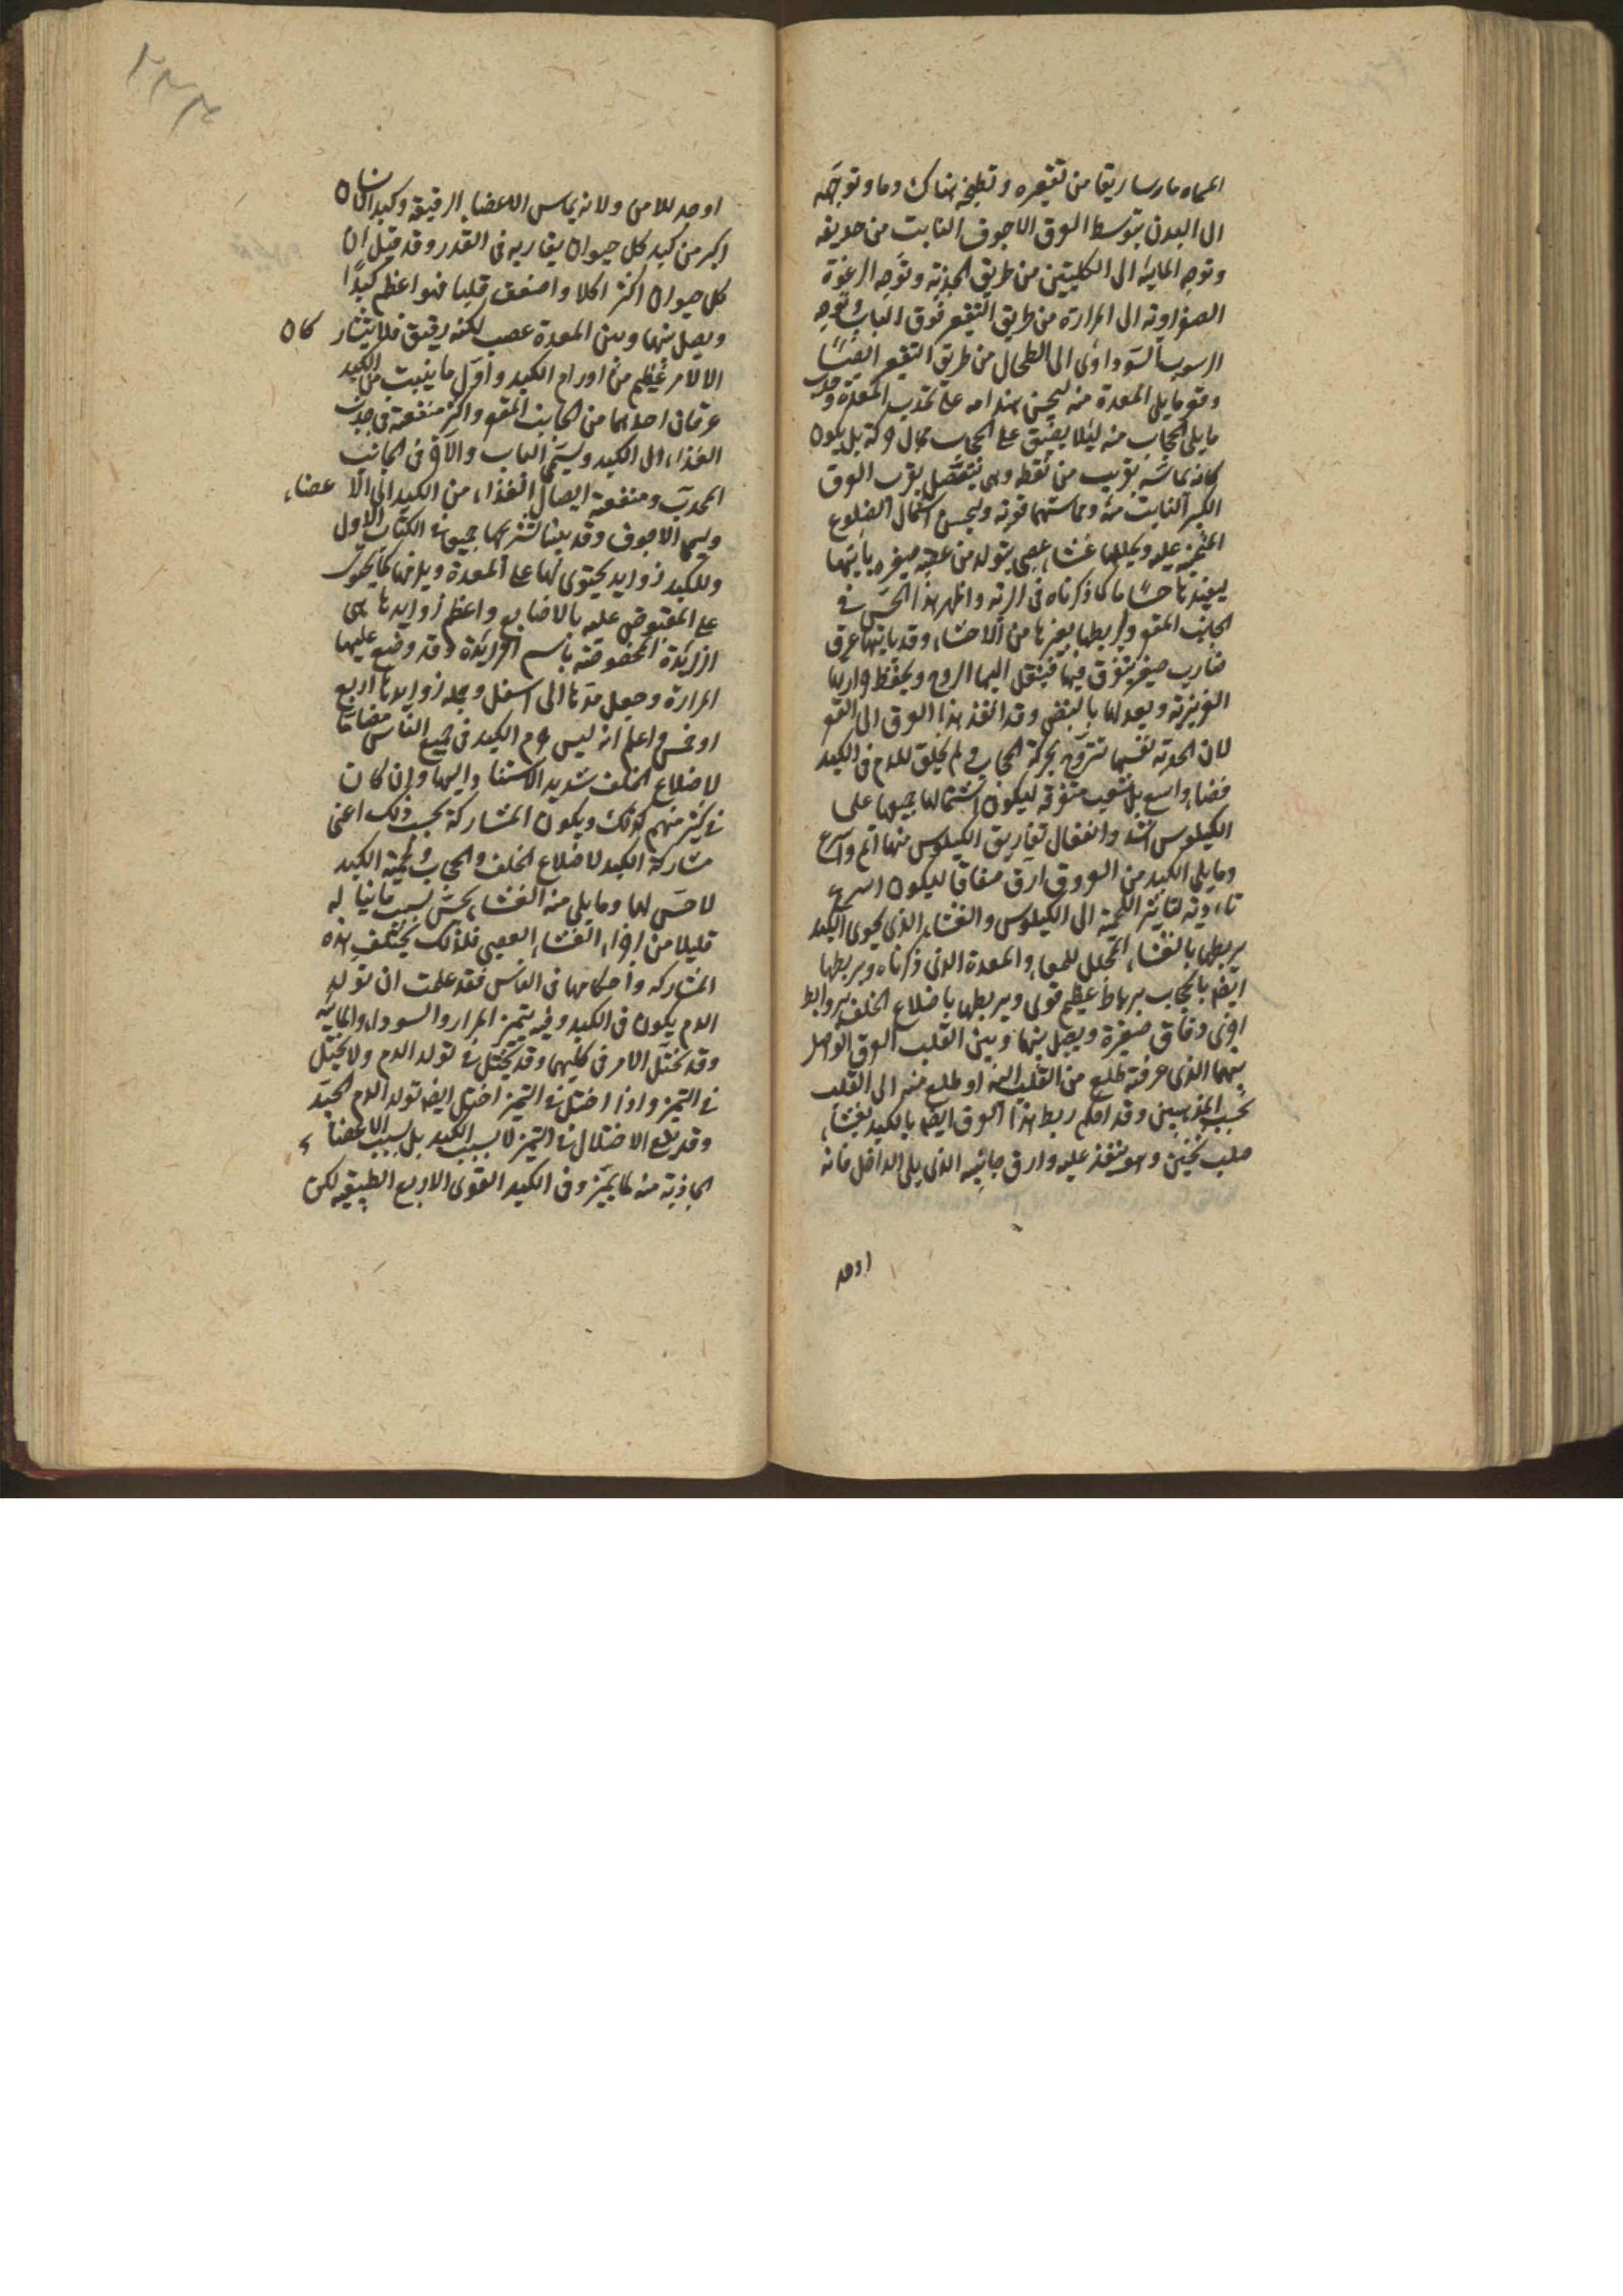 المسماه ماساريقا من تقعيره وتطبخه هناك دما وتوجهه
الى البدن بتوسط العرق الاجوف النابت من حدبته
وتوجه المائية الى الكليتين من طريق الحدبة وتوجه الرغوة
الصفراوية الى المرارة من طريق التقعير فوق الباب وتوجه
الرسوب السوداوى الى الطحال من طريق التقعير ايضا
وقعر ما يلى المعدة منه ليحسن هندامه على تحديب المعدة وحدب
ما يلى الحجاب منه ليلا يضيق على الحجاب مجال حركته بل يكون
كانه يماسه بقريب من نقطه وهى تتصل بقرب العرق
الكبير النابت منه ومماستها قوية وليحسن اشتمال الضلوع
المنحنية عليه ويجللها غشاء عصبى يتولد من عصبه صغيره ياتيها
ليفيدها حسا ما كما ذكرناه فى الرية واظهر هذا الحس فى
الجانب المقعر وليربطها بغيرها من الاحشاء وقد ياتيها عرق
ضارب صغير يتفرق فيها فينقل اليها الروح ويحفظ حرارتها
الغريزية ويعدلها بالنبض وقد انفذ هذا العرق الى القعر
لان الحدبة نفسها تتروح بحركة الحجاب ولم يخلق للدم فى الكبد
فضاء واسع بل شعب متفرقة ليكون اشتمال جميعها على
الكيلوس اشد وانفعال تفاريق الكيلوس منها اتم واسرع
وما يلى الكبد من العروق ارق صفاقا ليكون اسرع
تادية لتاثير اللحمية الى الكيلوس والغشاء الذى يحوى الكبد
يربطها بالغشاء المجلل للمعاء والمعدة الذى ذكرناه ويربطها
ايضا بالحجاب برباط عظيم قوى ويربطها باضلاع الخلف بروابط
اخرى دقاق صغيرة ويصل بينها وبين القلب العرق الواصل
بينهما الذى عرفته طلع من القلب اليه او طلع منه الى القلب
بحسب المذهبين وقد احكم ربط هذا العرق ايضا بالكبد بغشاء
صلب ثخين وهو ينفذ عليه وارق جانبيه الذى يلى الداخل فانه
اوجد
اوجد للامن ولانه يماس الاعضاء الرقيقة وكبد الانسان
اكبر من كبد كل حيوان يقاربه فى القدر وقد قيل ان
كل حيوان اكثر اكلا واضعف قلبا فهو اعظم كبدا
ويصل بينها وبين المعدة عصب لكنه رقيق فلا يتشاركان
الا لامر عظيم من اورام الكبد واول ما ينبت من الكبد
عرقان احدهما من الجانب المقعر واكثر منفعته فى جذب
الغذاء الى الكبد ويسمى الباب والآخر فى الجانب
المحدب ومنفعته ايصال الغذاء من الكبد الى الاعضاء
ويسمى الاجوف وقد بينا تشريحهما جميعا فى الكتاب الاول
وللكبد زوايد يحتوى بها على المعدة ويلزمها كما يحتوى
على المقبوض عليه بالاصابع واعظم زوايدها هى
الزايدة المخصوصة باسم الزايدة وقد وضع عليها
المرارة وجعل مدها الى اسفل وجملة زوايدها اربع
او خمس واعلم انه ليس جرم الكبد فى جميع الناس مضاما
لاضلاع الخلف شديد الاستناد اليها وان كان
فى كثير منهم كذلك ويكون المشاركة بحسب ذلك اعنى
مشاركة الكبد لاضلاع الخلف والحجاب ولحمة الكبد
لا حس لها وما يلى منه الغشاء يحس بسبب ما يناله
قليلا من اجزاء الغشاء العصبى فلذلك يختلف هذه
المشاركه واحكامها فى الناس فقد علمت ان تولد
الدم يكون فى الكبد وفيه يتميز المرار والسوداء والمائية
وقد يختل الامر فى كليهما وقد يختل فى تولد الدم ولا يختل
فى التميز واذا اختل فى التميز اختل ايضا تولد الدم الجيد
وقد يقع الاختلال فى التميز لا بسبب الكبد بل بسبب الاعضاء
الجاذبة منه لما يتميز وفى الكبد القوى الاربع الطبيعيه لكن